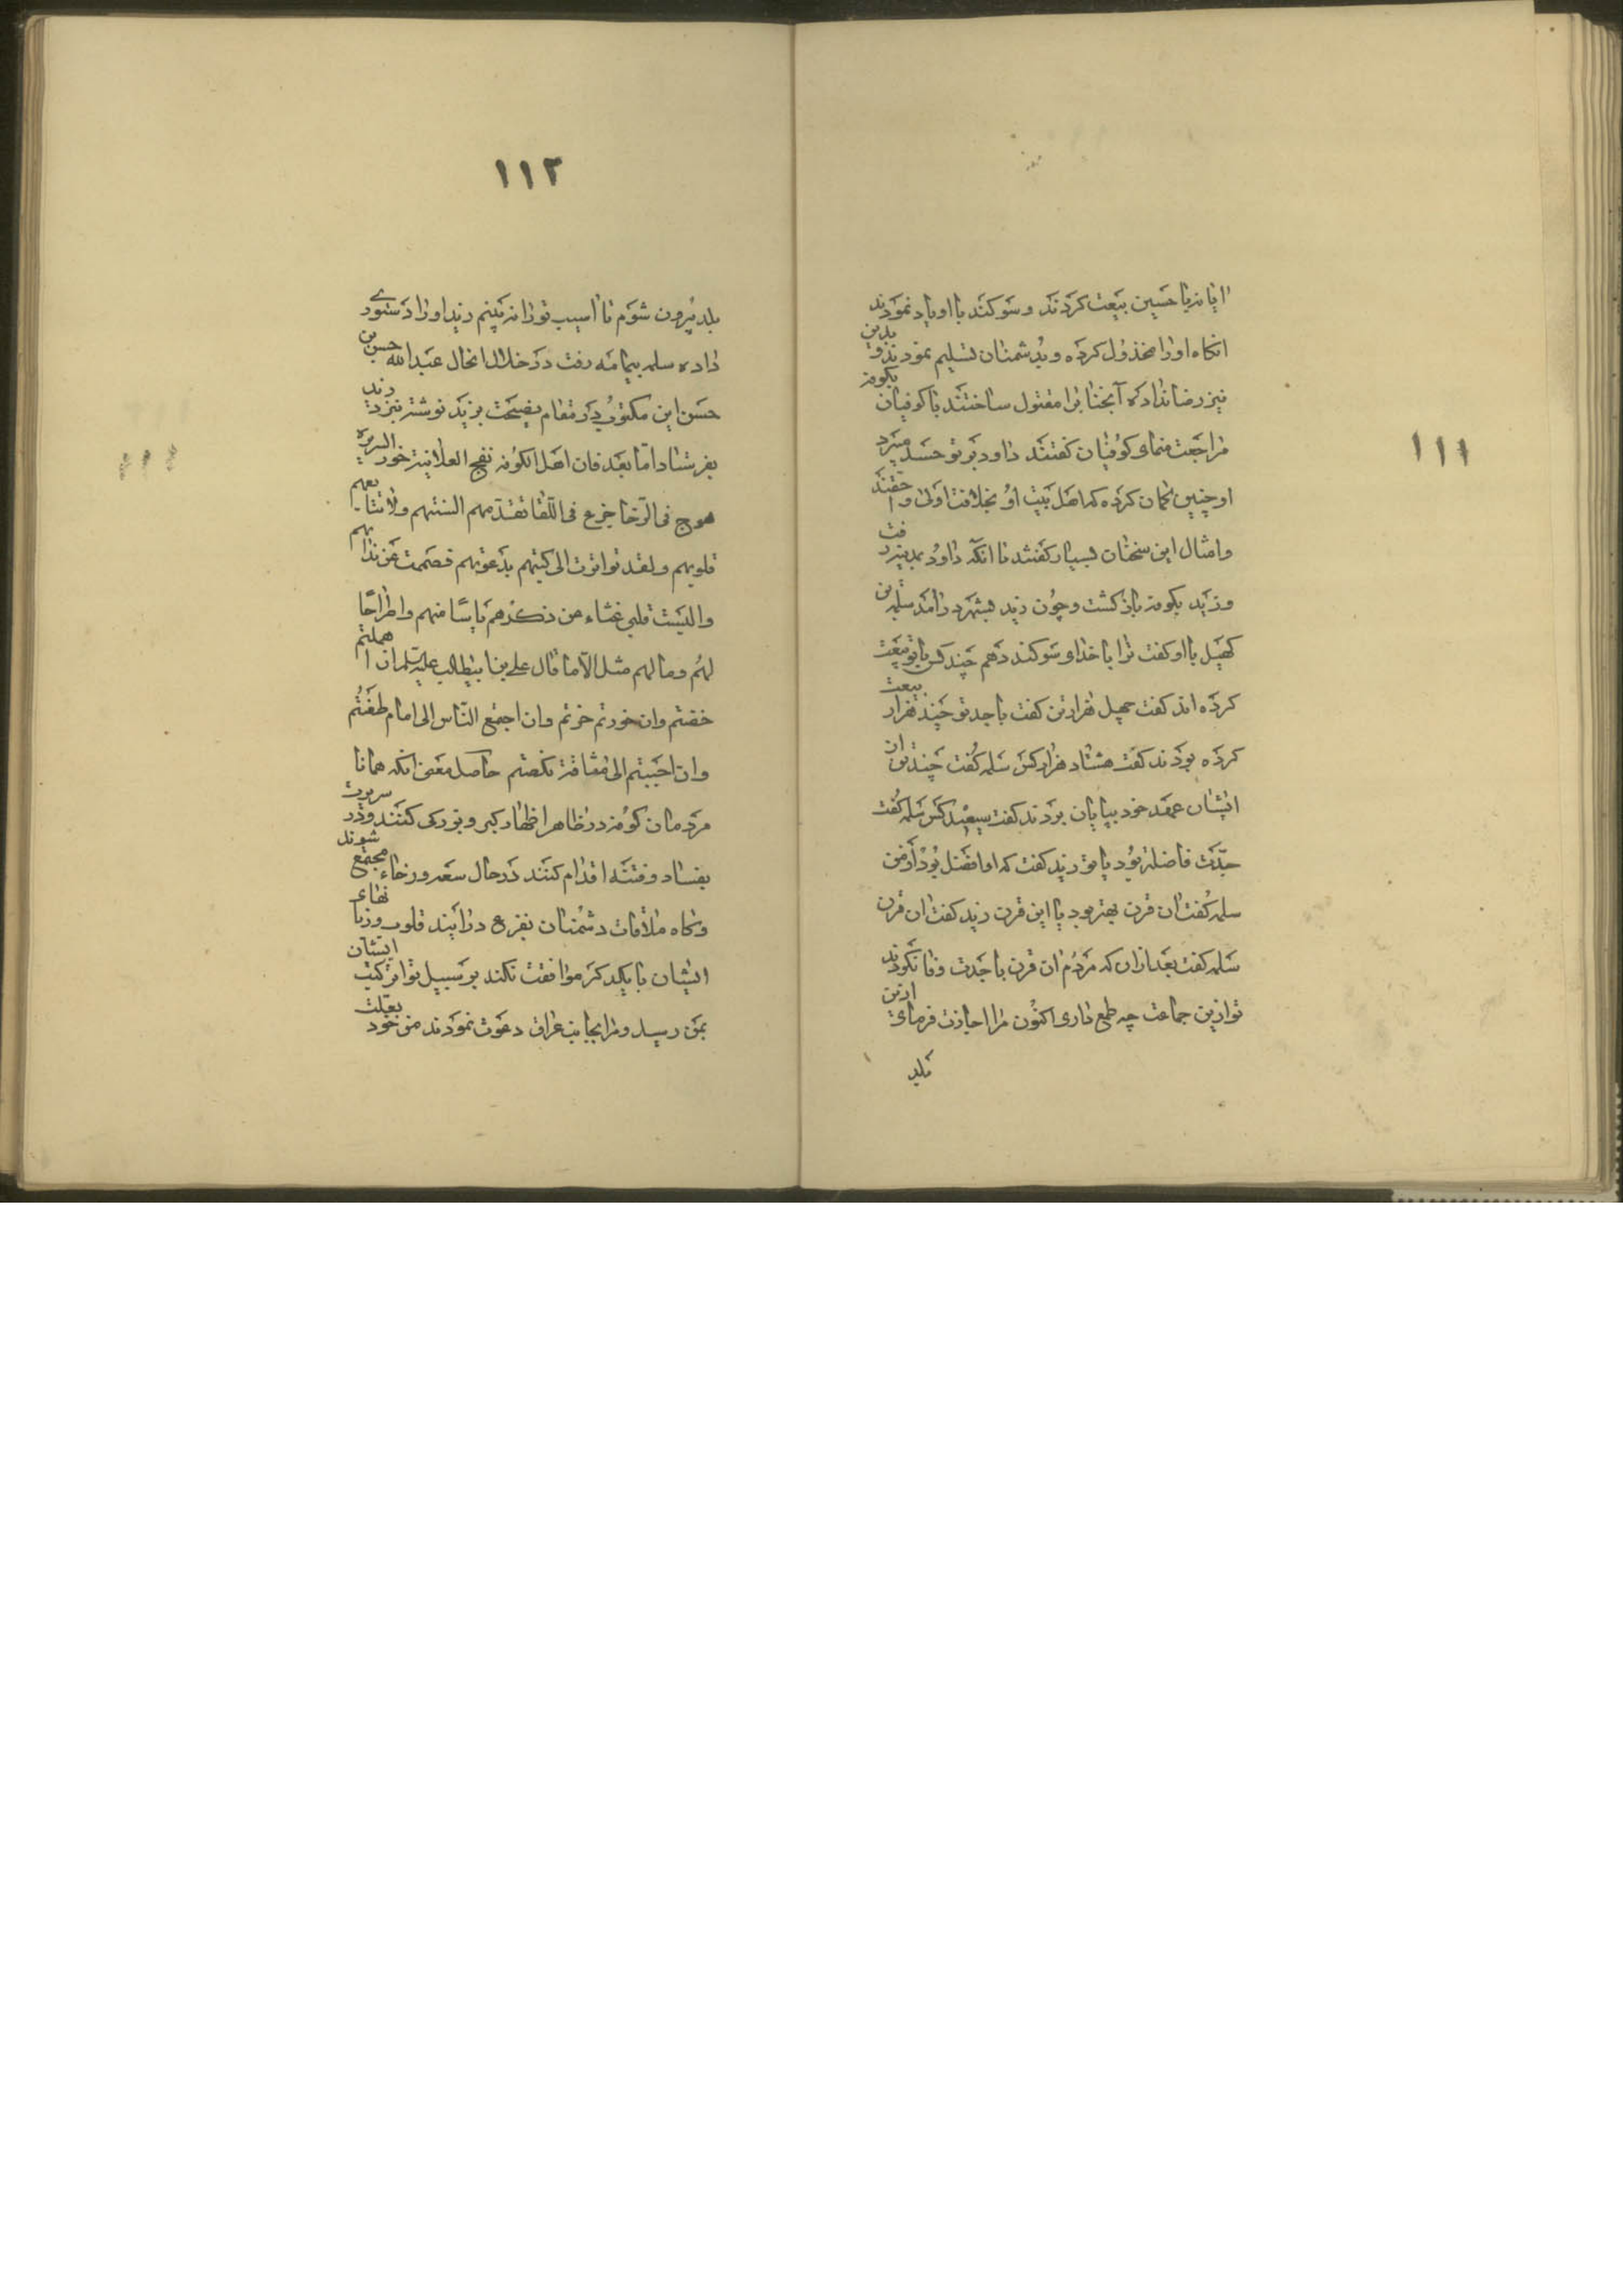 ۱۱۱
ایا نه با حسین بیعت کردند و سوکند با او یاد نمودند
انکاه او را مخذول کرده و بدشمنان تسلیم نمودند و بدین
نیز رضا نداده آنجناب را مقتول ساختند با کوفیان بکوفه
مراجعت منمای کوفیان کفتند داود بر تو حسد میبرد
او چنین کمان کرده که اهل بیت او بخلافت اولی و احقند
و امثال این سخنان بسیار کفتند تا انکه داود بمدینه رفت
و زید بکوفه باز کشت و چون زید بشهر در امد سلمه بن
کهیل با او کفت ترا با خدای سوکند دهم چند کس با تو بیعت
کرده اند کفت چهل هزار تن کفت با جد تو چند هزار بیعت
کرده بودند کفت هشتاد هزار کس سلمه کفت چند تن از
ایشان عهد خود بپایان بردند کفت سیصد کس سلمه کفت
جدت فاضلتر بود یا تو زید کفت که او افضل بود از من
سلمه کفت ان قرن بهتر بود یا این قرن زید کفت ان قرن
سلمه کفت بعد از ان که مردم ان قرن با جدت وفا نکردند
تو ازین جماعت چه طمع داری اکنون مرا اجازت فرمای ازین
بلد
۱۱۲
بلد بیرون شوم تا اسیب تو را نه بینم زید او را دستوری
داده سلمه بیمامه رفت در خلال انحال عبد الله حسن بن
حسن این مکتوب در مقام نصیحت بزید نوشته نزد زید
بفرستاد اما بعد فان اهل الکوفه نفج العلانیة خور السریره
هوج فی الرخا جزع فی اللقا تقدمهم السنتهم و لا تتابعهم
قلوبهم و لقد تواترت الی کتبهم بدعوتهم فصممت عن ندائهم
و البست قلبی غشاء عن ذکرهم یاسا منهم و اطراحا
لهم و ما لهم مثل الا ما قال علی بن ابیطالب علیه السلم ان اهملتم
خضتم وان خورتم خرتم وان اجتمع الناس الی امام طعنتم
وان اجبتم الی مشاقة نکصتم حاصل معنی انکه همانا
مردمان کوفه در ظاهر اظهار کبر و بزرکی کنند و در سریرت
بفساد و فتنه اقدام کنند در حال سعه و رخاء مجتمع شوند
و نکاه ملاقات دشمنان بفزع در ایند قلوب و زبانهای
ایشان با یکدیکر موافقت نکند بر سبیل تواتر کتب ایشان
بمن رسید و مرا بجانب عراق دعوت نمودند من خود بعلت